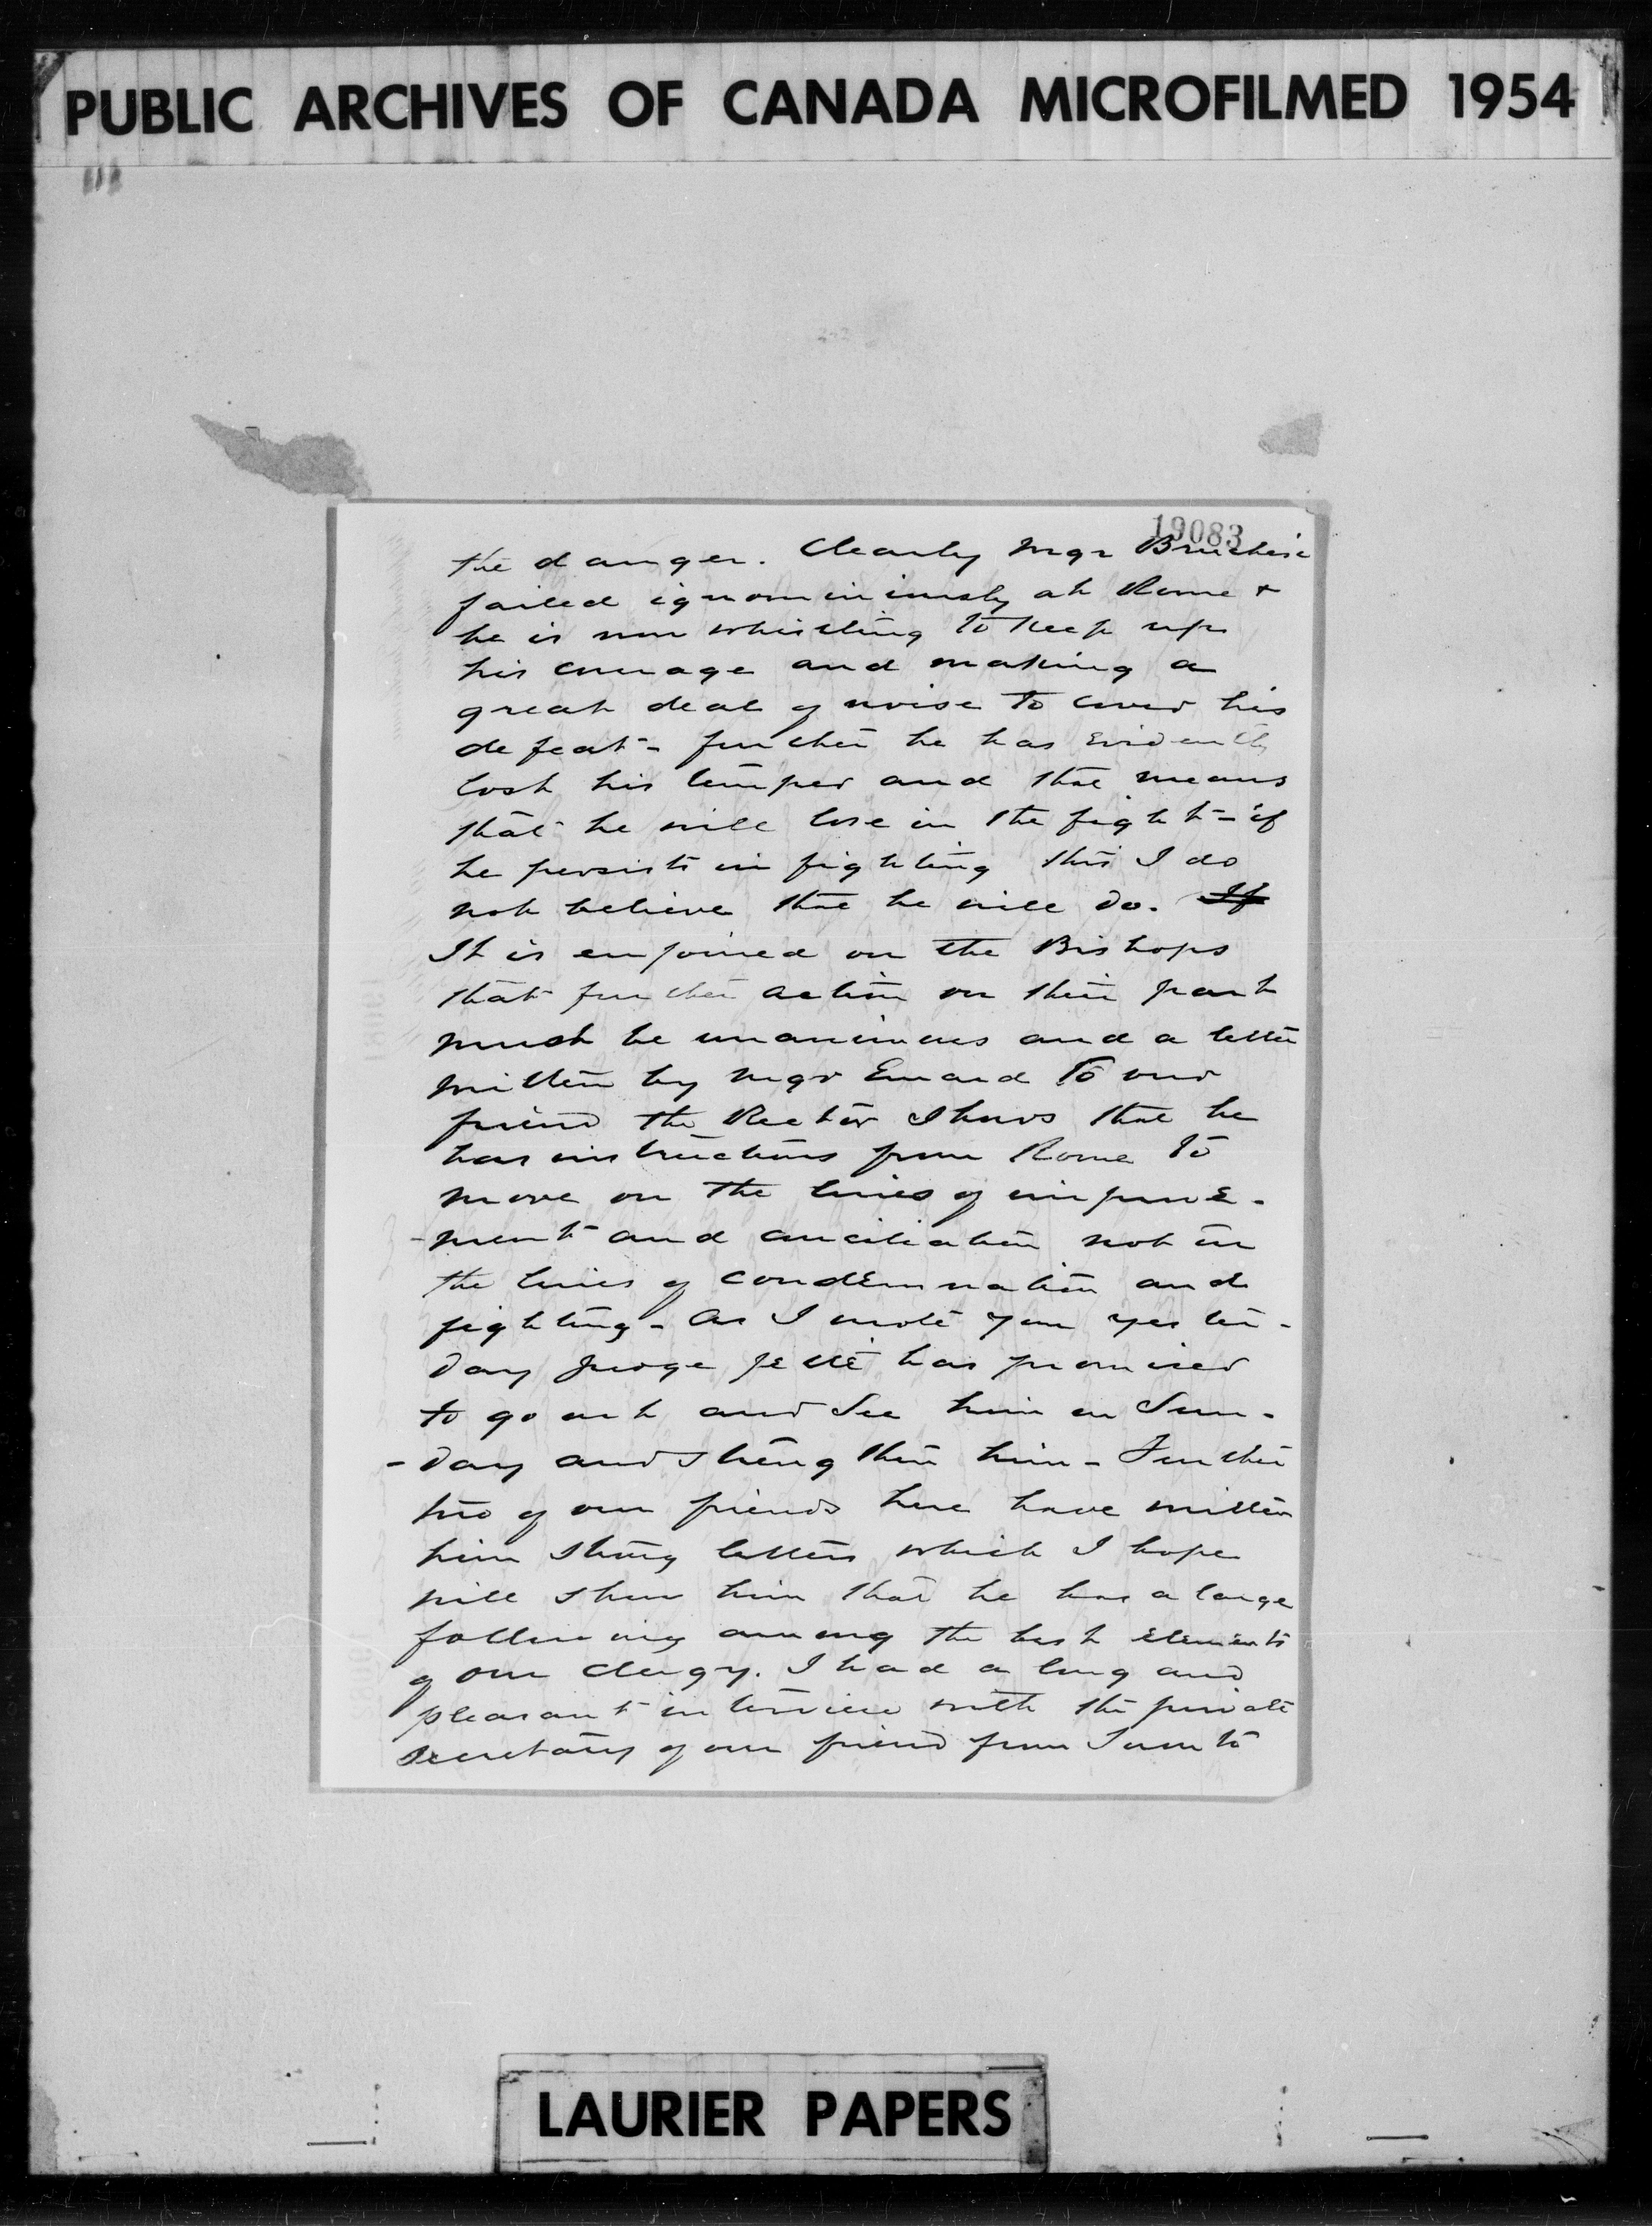 PUBLIC ARCHIVES OF CANADA MICROFILMED 1954
19083
the danger. Clearly Mgr Bruchesi
failed ignominiously at Rome &
he is now whistling to keep up
his courage and making a
great deal of noise to cover his
defeat - further he has evidently
lost his temper and that means
that he will lose in the fight - if
he persists in fighting this I do
not believe that he will do. If
It is enjoined on the Bishops
that further action on their part
must be unanimous and a letter
written by Mgr Emard to our
friend the Rector shows that he
has instructions from Rome to
move on the lines of improve-
-ment and conciliation not on
the lines of condemnation and
fighting - As I wrote you yester-
day Judge Jetté has promised
to go out and see him on Sun-
-day and strengthen him - Further
two of our friends here have written
him strong letters which I hope
will show him that he has a large
following among the best elements
of our clergy. I had a long and
pleasant interview with the private
secretary of our friend from Toronto
LAURIER PAPERS